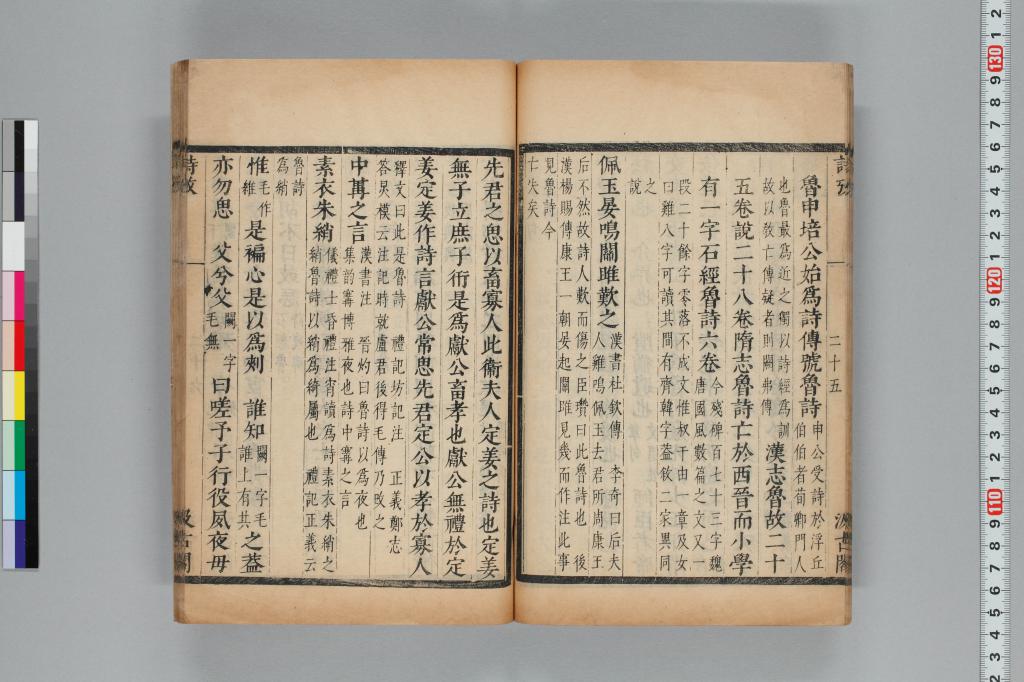 詩攷　二十五　汲古閣
魯申培公始為詩傳號魯詩
申公受詩於浮丘
伯伯者荀卿門人
也魯最為近之獨以詩經為訓
故以敎亡傳疑者則闕弗傳
漢志魯故二十
五卷說二十八卷隋志魯詩亡於西晉而小學
有一字石經魯詩六卷
今殘碑百七十三字魏
唐國風數篇之文又一
段二十餘字零落不成文惟叔于田一章及女
曰雞八字可讀其間有齊韓字葢敘二家異同
之
說
佩玉晏鳴關雎歎之
漢書杜欽傳　李奇曰后夫
人雞鳴佩玉去君所周康王
后不然故詩人歎而傷之臣瓚曰此魯詩也　後
漢楊賜傳康王一朝晏起關雎見幾而作注此事
見魯詩今
亡失矣
先君之思以畜寡人此衞夫人定姜之詩也定姜
無子立庶子衎是為獻公畜孝也獻公無禮於定
姜定姜作詩言獻公常思先君定公以孝於寡人
釋文曰此是魯詩　禮記坊記注　正義鄭志
答炅模云注記時就盧君後得毛傳乃改之
中冓之言
漢書注　晉灼曰魯詩以為夜也
集韵冓博雅夜也詩中冓之言
素衣朱綃
儀禮士昏禮注宵讀為詩素衣朱綃之
綃魯詩以綃為綺屬也　禮記正義云
魯詩
為綃
惟
毛作
維
是褊心是以為刺　誰知
闕一字毛
誰上有其
之葢
亦勿思　父兮父
闕一字
毛無
曰嗟予子行役夙夜毋
詩攷　汲古閣